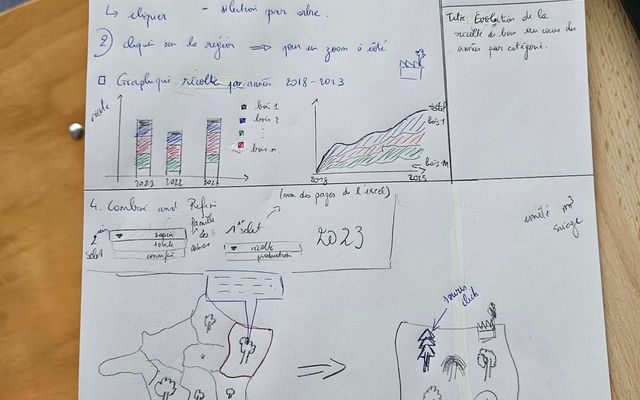 ↳ cliquer - sélection par arbre.
2) cliqué sur la région ⇒ pour un zoom à côté
Graphique récolte par années 2018-2023
Titre: Évolution de la
récolte de bois au cours des
années par catégorie.
récolte
bois 1
bois 2
bois n
2021 2022 2023
total
bois 1
bois n
2018 2023
4. Combine and Refine
(nom des pages de l'excel)
select
sapin
famille
les
1er select
récolte
production
2023
unité m³
sciage
souris
click